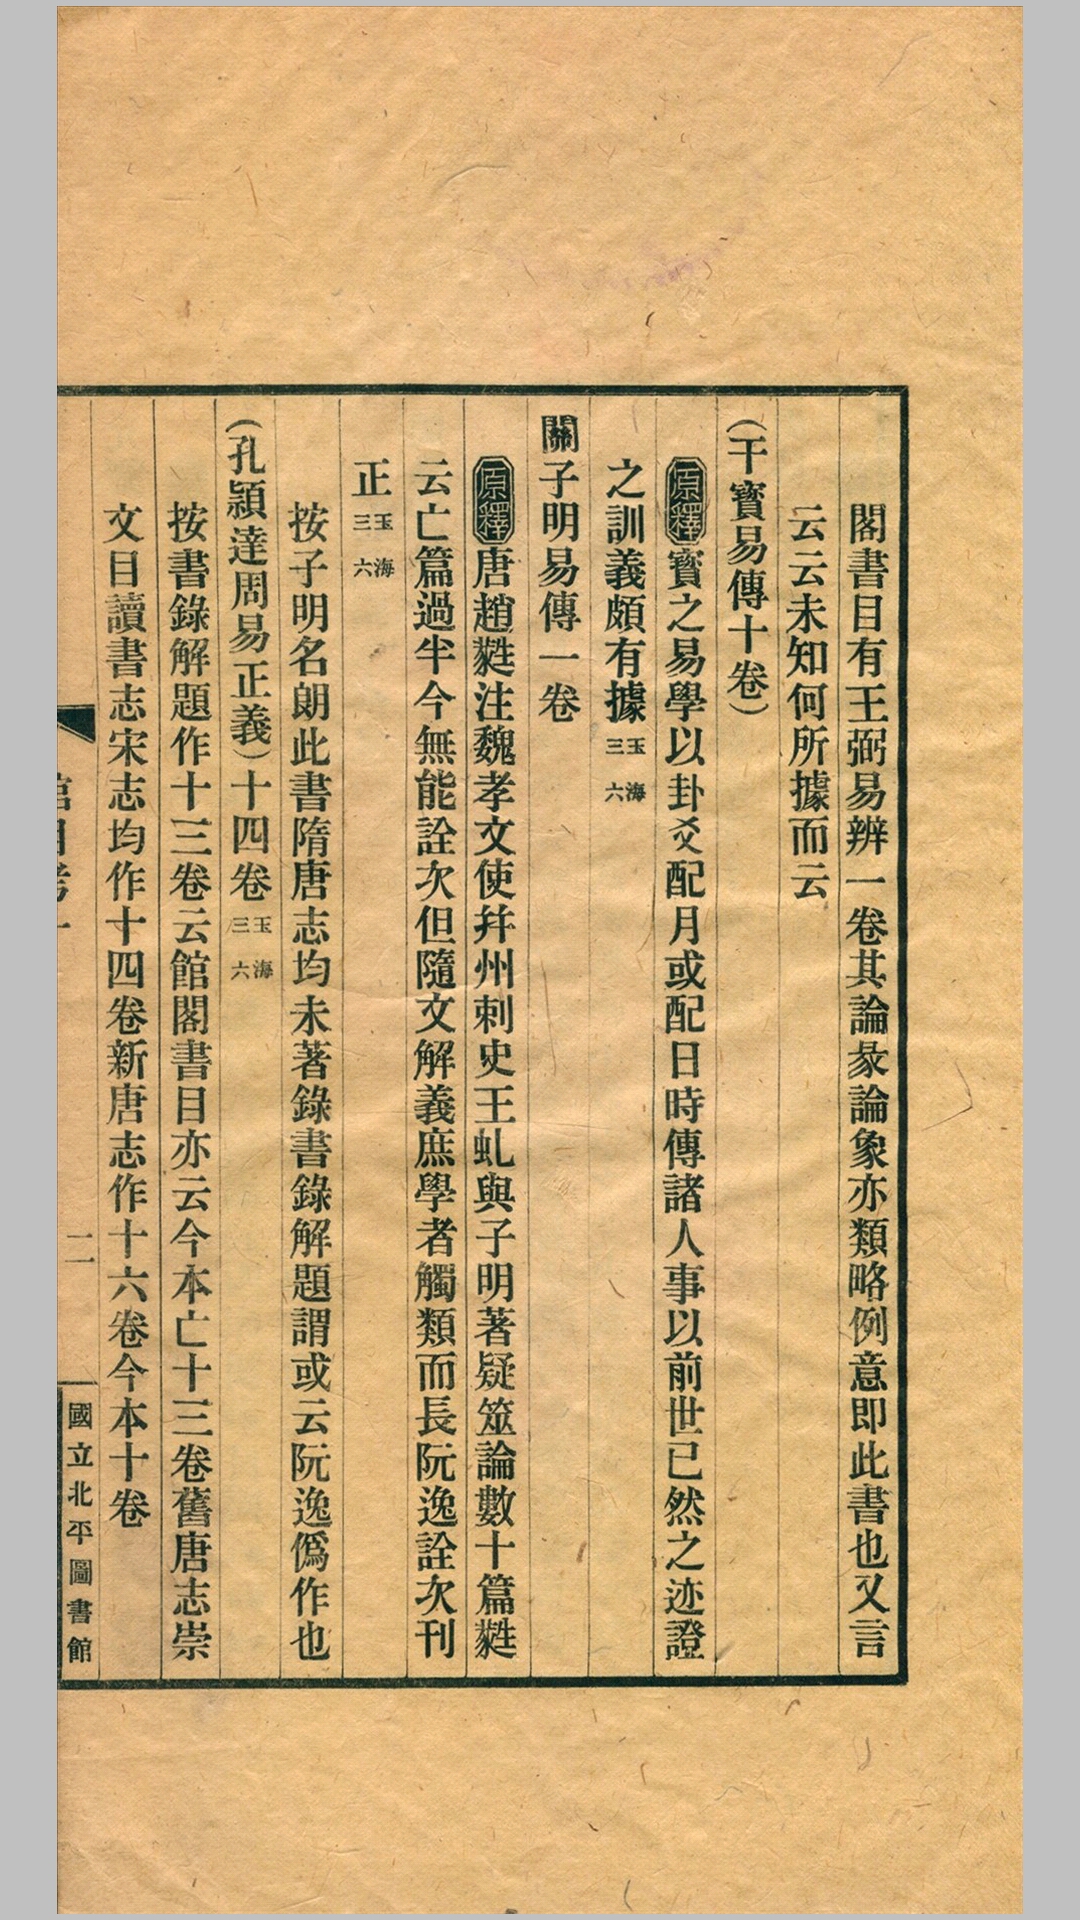 閣書目有王弼易辨一卷其論彖論象亦類略例意即此書也又言
云云未知何所據而云
（干寳易傳十卷）
原釋寳之易學以卦爻配月或配日時傳諸人事以前世已然之迹證
之訓義頗有據玉海三六
關子明易傳一卷
原釋唐趙蕤注魏孝文使幷州刺史王虬與子明著疑筮論數十篇蕤
云亡篇過半今無能詮次但隨文解義庶學者觸類而長阮逸詮次刊
正玉海三六
按子明名朗此書隋唐志均未著錄書錄解題謂或云阮逸僞作也
（孔穎達周易正義）十四卷玉海三六
按書錄解題作十三卷云館閣書目亦云今本亡十三卷舊唐志崇
文目讀書志宋志均作十四卷新唐志作十六卷今本十卷
二
國立北平圖書館